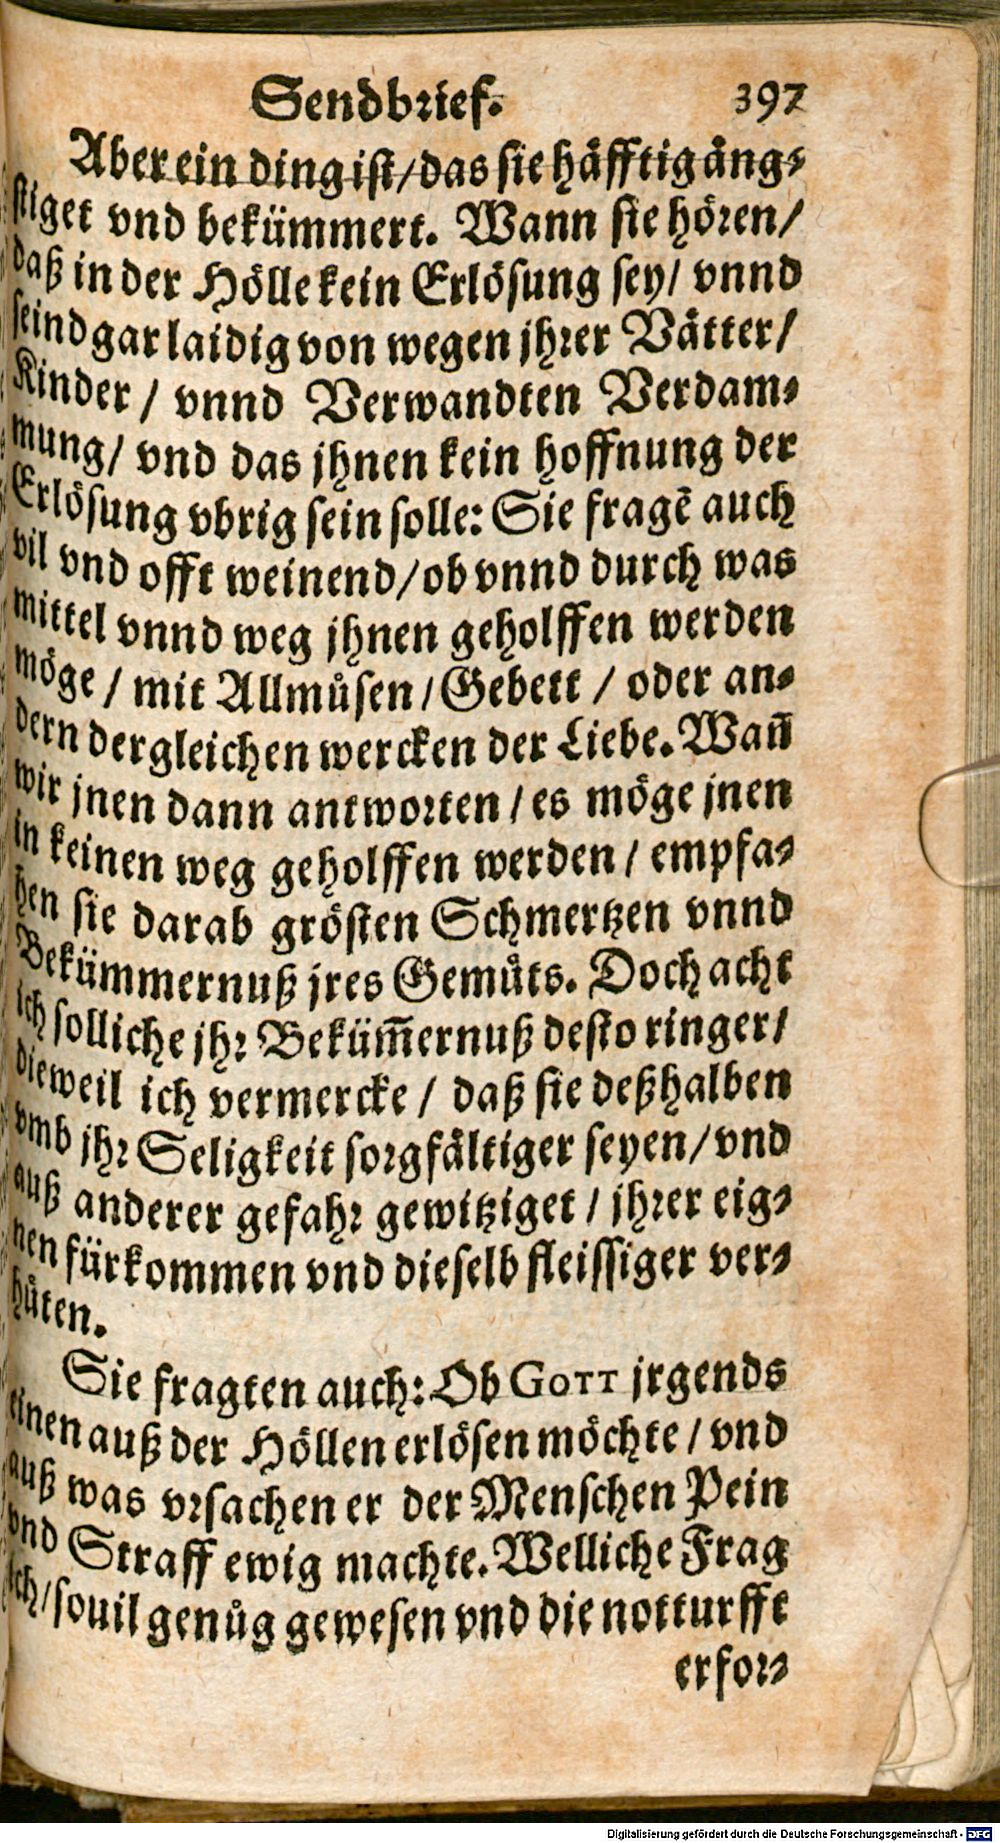 Sendbrief. 397
Aber ein ding ist/ das sie häfftig äng-
stiget vnd bekümmert. Wann sie hören/
daß in der Hölle kein Erlösung sey/ vnnd
seind gar laidig von wegen jhrer Vätter/
Kinder / vnnd Verwandten Verdam-
mung/ vnd das jhnen kein hoffnung der
Erlösung vbrig sein solle: Sie fragē auch
vil vnd offt weinend/ ob vnnd durch was
mittel vnnd weg jhnen geholffen werden
möge / mit Allmůsen / Gebett / oder an-
dern dergleichen wercken der Liebe. Wañ
wir jnen dann antworten / es möge jnen
in keinen weg geholffen werden / empfa-
hen sie darab grösten Schmertzen vnnd
Bekümmernuß jres Gemůts. Doch acht
ich solliche jhr Beküm̄ernuß desto ringer/
dieweil ich vermercke / daß sie deßhalben
vmb jhr Seligkeit sorgfältiger seyen/ vnd
auß anderer gefahr gewitziget / jhrer eig-
nen fürkommen vnd dieselb fleissiger ver-
hůten.
Sie fragten auch: Ob GOTT jrgends
einen auß der Höllen erlösen möchte / vnd
auß was vrsachen er der Menschen Pein
vnd Straff ewig machte. Welliche Frag
ich/ souil genůg gewesen vnd die notturfft
erfor-
Digitalisierung gefördert durch die Deutsche Forschungsgemeinschaft - DFG